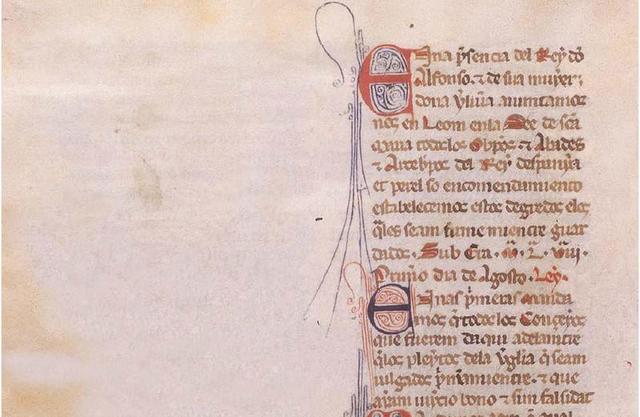 Ena p̃sencia del Rey dõ
Alfonso ⁊ de sua muyer
dona aiuntamos
nos en Leom enla See de sc̃a
Maria todelos Obp̃os ⁊ Abades
⁊ Arcebp̃os del Rey despanya
et perel so encomendamiento
estabelecemos estos degredos elos
q̃les seam firme miencre guar
dados. Sub Era. M. L. Viii.
Primo dia de Agosto. Ley.
Enas p̃meras manda
mos q̃ todelos Conceyos
que fuerem daqui adelantre
q̃los pleytos dela yglia q̃ seam
iulgados ⁊ que
ayam iuyzio bono ⁊ sim falsidat